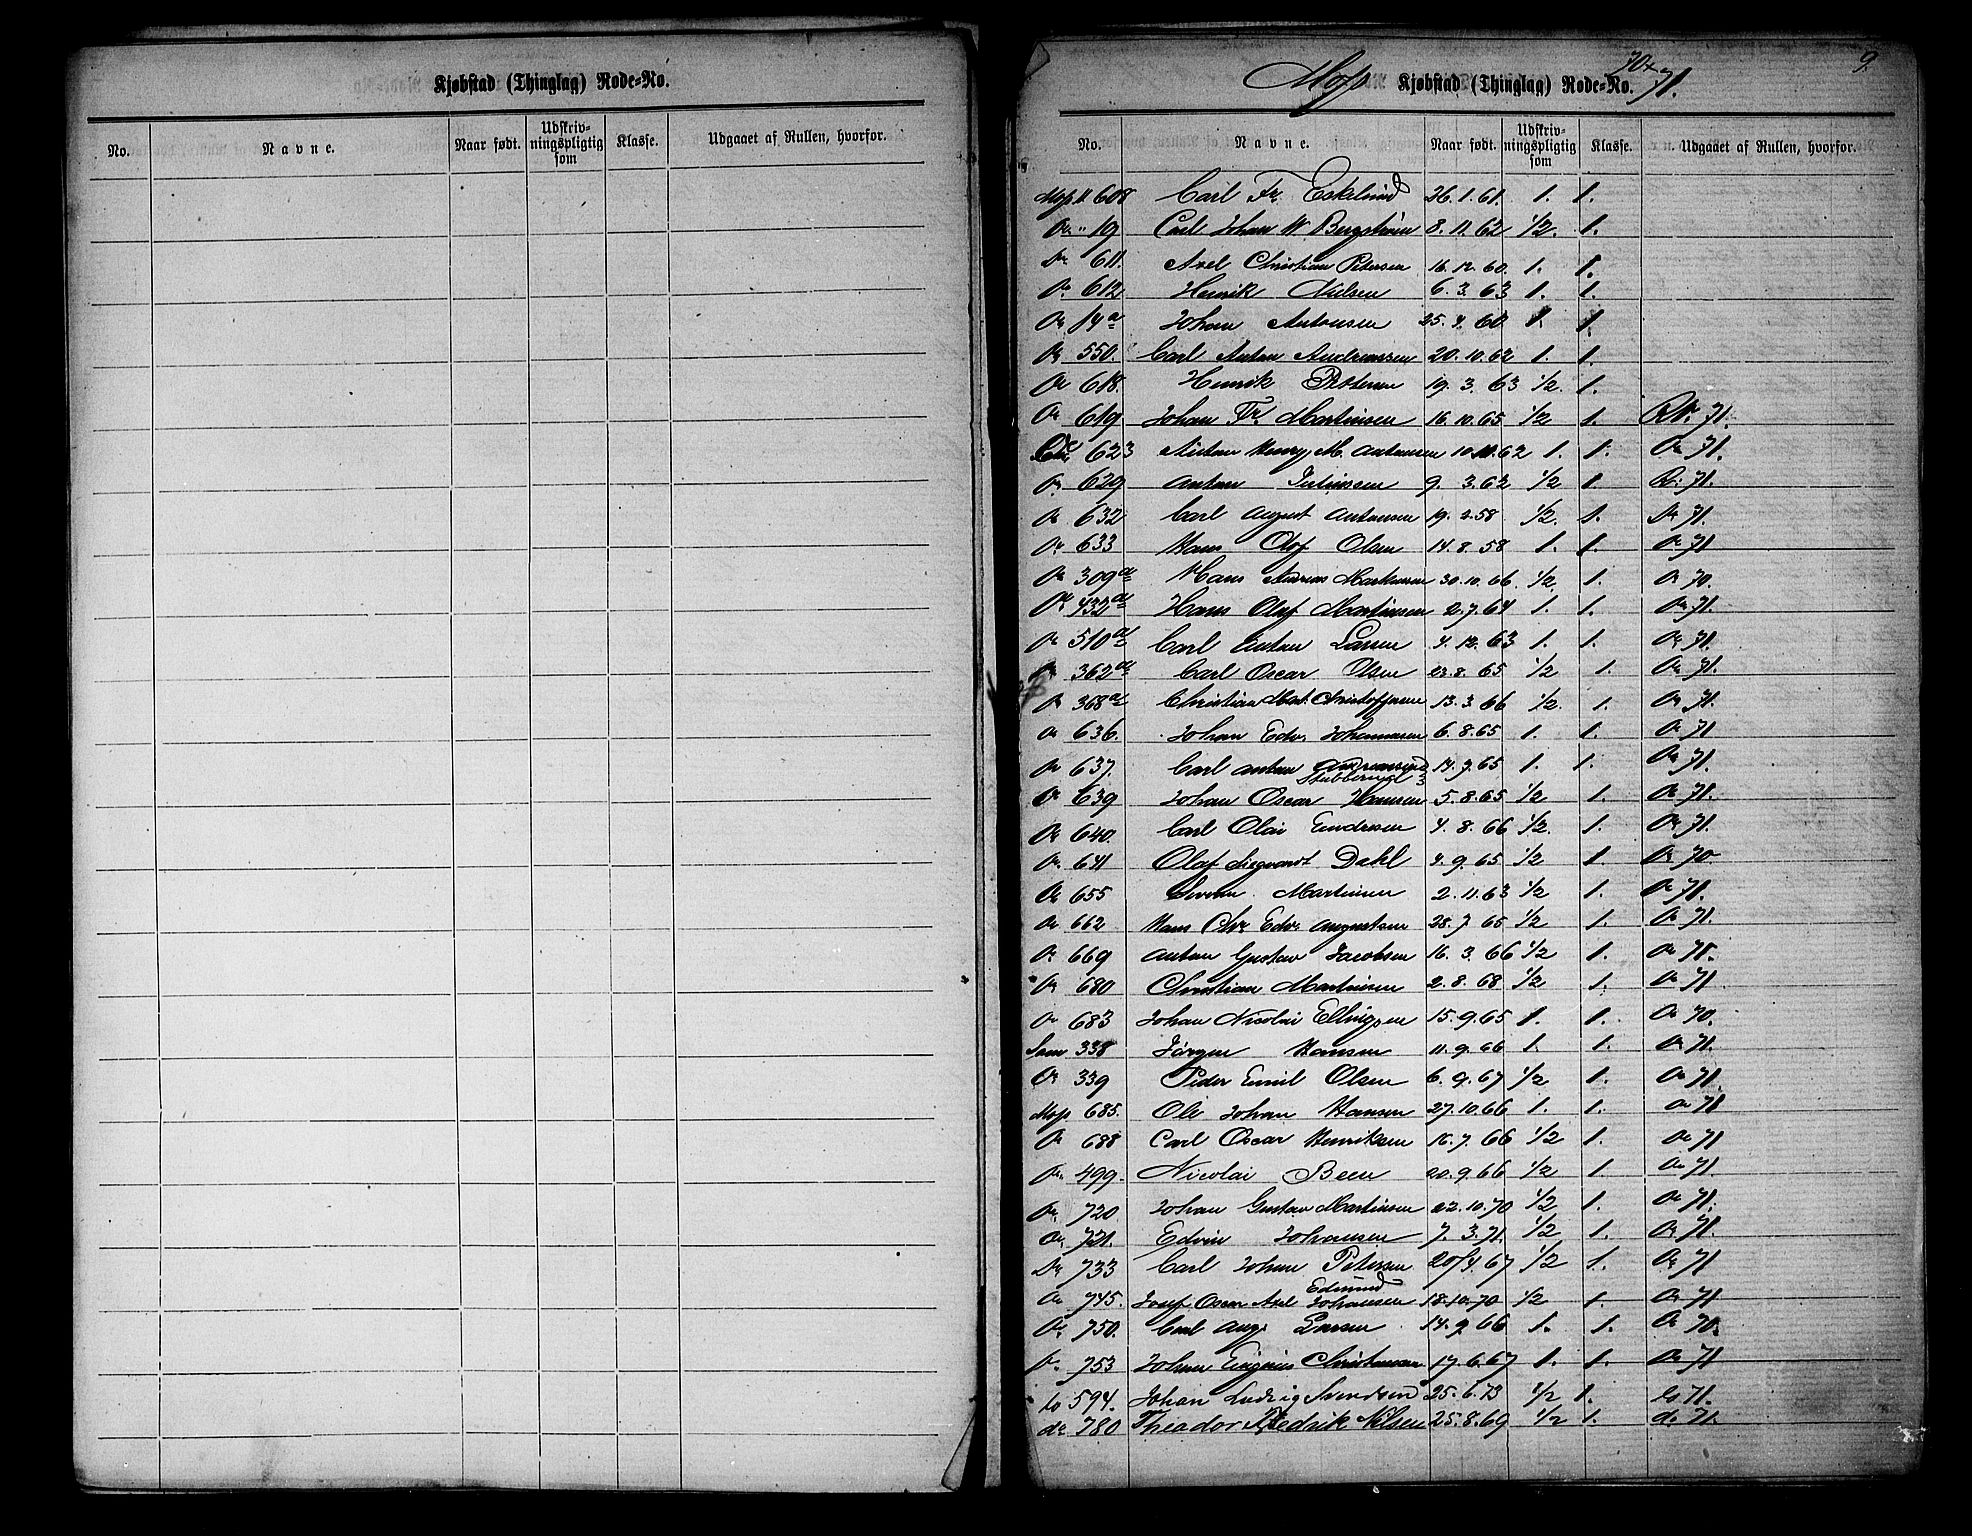 Kjøbstad (Thinglag) Rode-No.
No. Navne. Naar født. Udskriv-ningspligtig som Klasse. Udgaaet af Rullen, hvorfor.
Moss Kjøbstad (Thinglag) Rode-No. 70 + 71. 9.
No. Navne. Naar født. Udskriv-ningspligtig som Klasse. Udgaaet af Rullen, hvorfor.
Moss 11 608 Carl Fr. Eskelund 26.1.61. 1. 1.
Do " 19 Carl Johan W 8.11.62 1/2. 1.
Do 611. Axel Christian Petersen 16.12.60. 1. 1.
Do 612 Henrik Nielsen 6.3.63 1. 1.
Do 14a Johan Antonsen 25.4.60 1. 1.
Do 550. Carl Anton Andreassen 20.10.62 1. 1.
Do 618. Henrik Pettersen 19.3.63 1/2. 1.
Do 619 Johan Fr. Martinsen 16.10.65 1/2 1. 71.
Do 623 Henry M. Antonsen 62 1. 1. Do 71.
Do 629 Anton 9. 3.62 1/2 1. 71.
Do 632 Carl August Antonsen 19.2.58 1/2. 1. Do 71.
Do 633 Hans Olof Olsen 14.8.58 1. 1. Do 71
Do 309a Hans Andreas 30.10.66 1/2 1. Do 70.
Do 432a Hans Olaf Martinsen 2.7.64 1. 1. Do 71.
Do 510a Carl Anton Larsen 4.12.63 1. 1. Do 71.
Do 362a Carl Oscar Olsen 23.8.65 1/2 1. Do 71.
Do 368a Christian Mart. Christoffersen 13.3.66 1/2. 1. Do 71.
Do 636. Johan Edv. Johannesen 6.8.65 1. 1. Do 71
Do 637. Carl Anton Andreassen 14.7.65 1. 1. Do 71.
Do 639 Johan Oscar Hansen 5.8.65 1/2 1. Do 71.
Do 640. Carl Olai 4.8.66 1/2. 1. Do 71.
Do 641 Olaf Sigvardt Dahl 4.9.65 1/2 1 Do 70
Do 655 Martinsen 2.11.63 1/2 1. Do 71.
Do 662 Hans Chr. Edv. Augustsen 28.7 65 1/2 1. Do 71.
Do 669 Anton Gustav Jacobsen 16.3.66 1/2 1. Do 71.
Do 680 Christian Martinsen 2.8.68 1/2 1. Do 71
Do 683 Johan Nicolai Ellingsen 15.9.65 1. 1. Do 70.
Søm 338 Jørgen Hansen 11.9.66 1. 1. Do 71.
Do 339 Peder Emil Olsen 6.9.67 1/2 1. Do 71.
Moss 685. Ole Johan Hansen 27.10.66 1. 1. Do 71
Do 688 Carl Oscar Henriksen 16.7.66 1/2 1. Do 71
Do 499. Nicolai Been 20.9.66 1/2 1. Do 71.
Do 720 Johan Gustav Martinsen 22.10.70 1/2 1. Do 71.
Do 721. Edvin Johansen 7.3.71. 1/2 1. Do 71.
Do 733 Carl Johan Petersen 20/4.67 1/2 1. Do 71
Do 745. Josef Oscar Axel Edmund Johansen 18.10.70 1/2 1. Do 71
Do 750. Carl Aug. Larsen 14.9.66 1. 1. Do 70.
Do 753 Johan Christensen 17.6.67 1. 1. Do 71
do 594. Johan Ludvig Svendsen 25.6.73 1/2 1. do 71.
do 780 Theodor Fredrik Nilsen 25.8.69 1/2 1. d. 71.